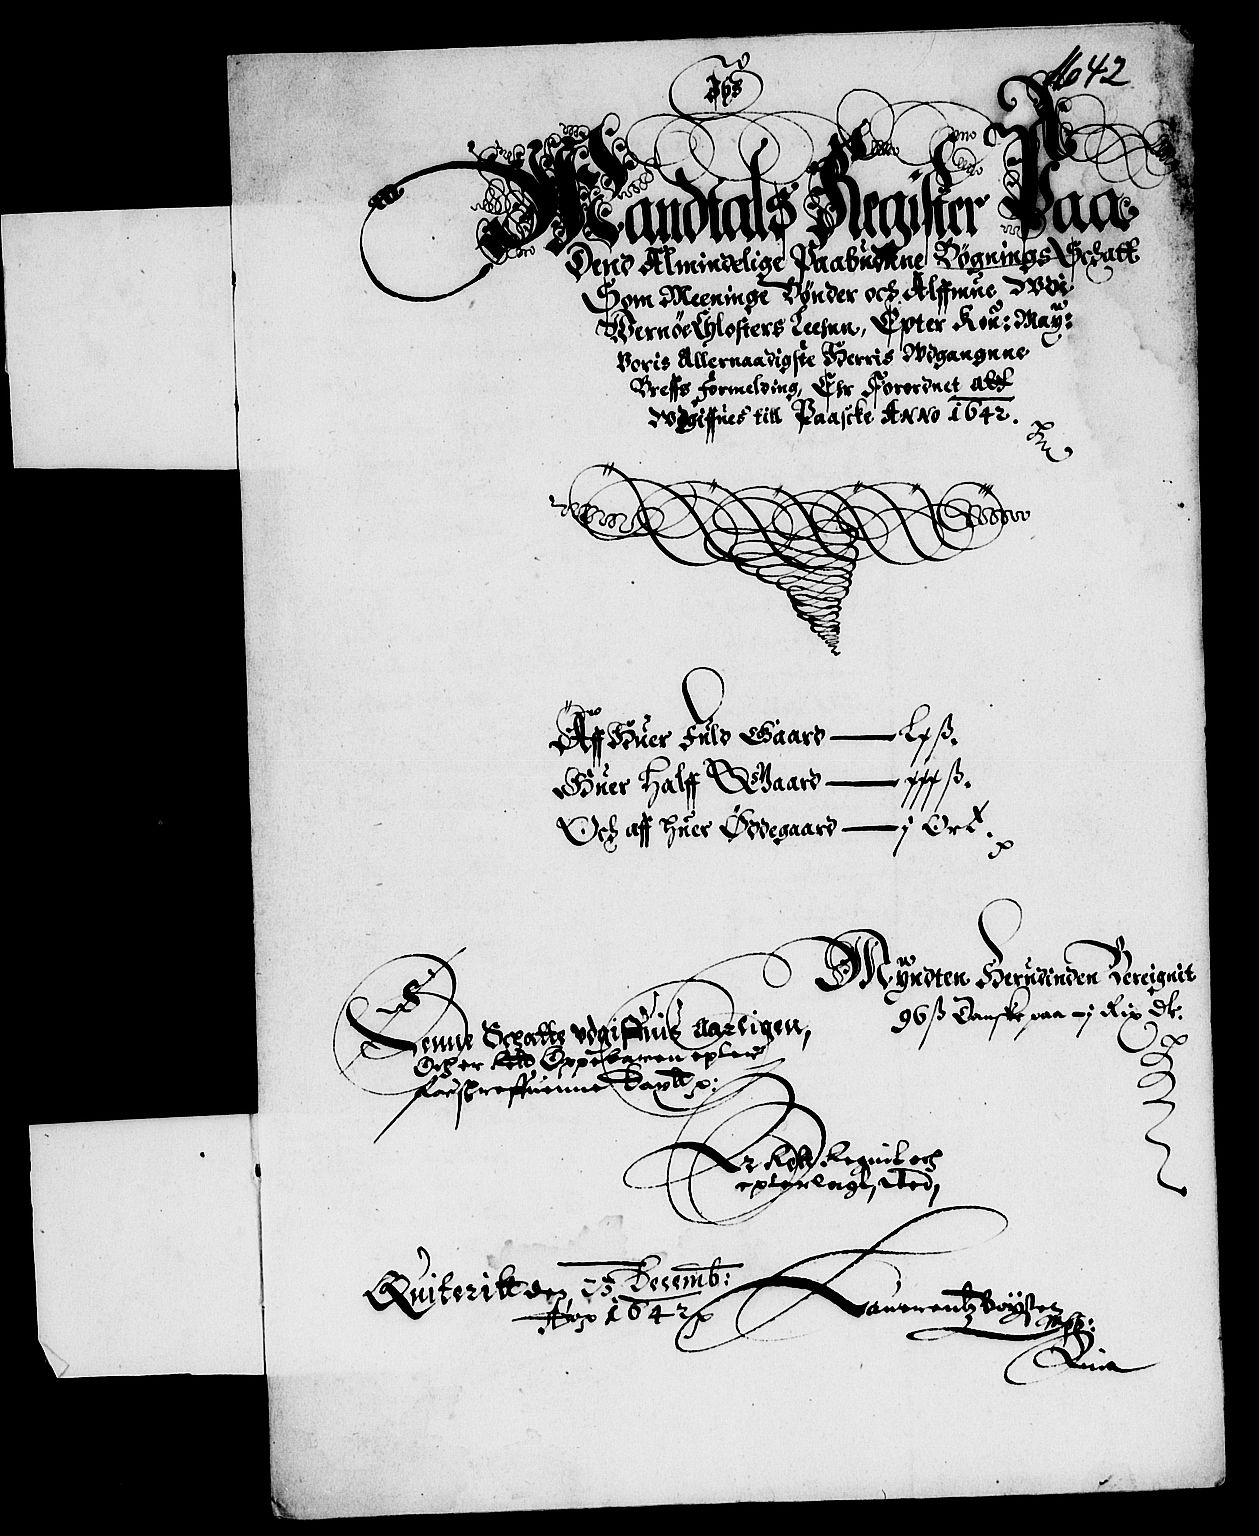 1642
Jhs
Mandtals Register Paa
Dend Almindelige Paabudene Bögnings Schatt
Som Meeninge Bönder och Alffmue Wdi
Wernöe Chlosters Leehnn, Epter Kon: May:
Voris Allernaadigste Herris Wdgangnne
Breffs formelding, Ehr Forordnet att
Wdgiffues till Paascke Anno 1642.
Aff Huer Fuld Gaard — Lx ß.
Huer Halff Gaard — xxx ß.
Och aff huer Ödegaard — j Ort.
Myndten Herudinden Bereignit
96 ß Danske paa — j Rix Dlr.
Denne Schatts udgifftuis aarligen,
Och er
Er Rett Regnit och
epterlagt,
Quiterit den 23 Decemb:
Ao 1642
Laurentz